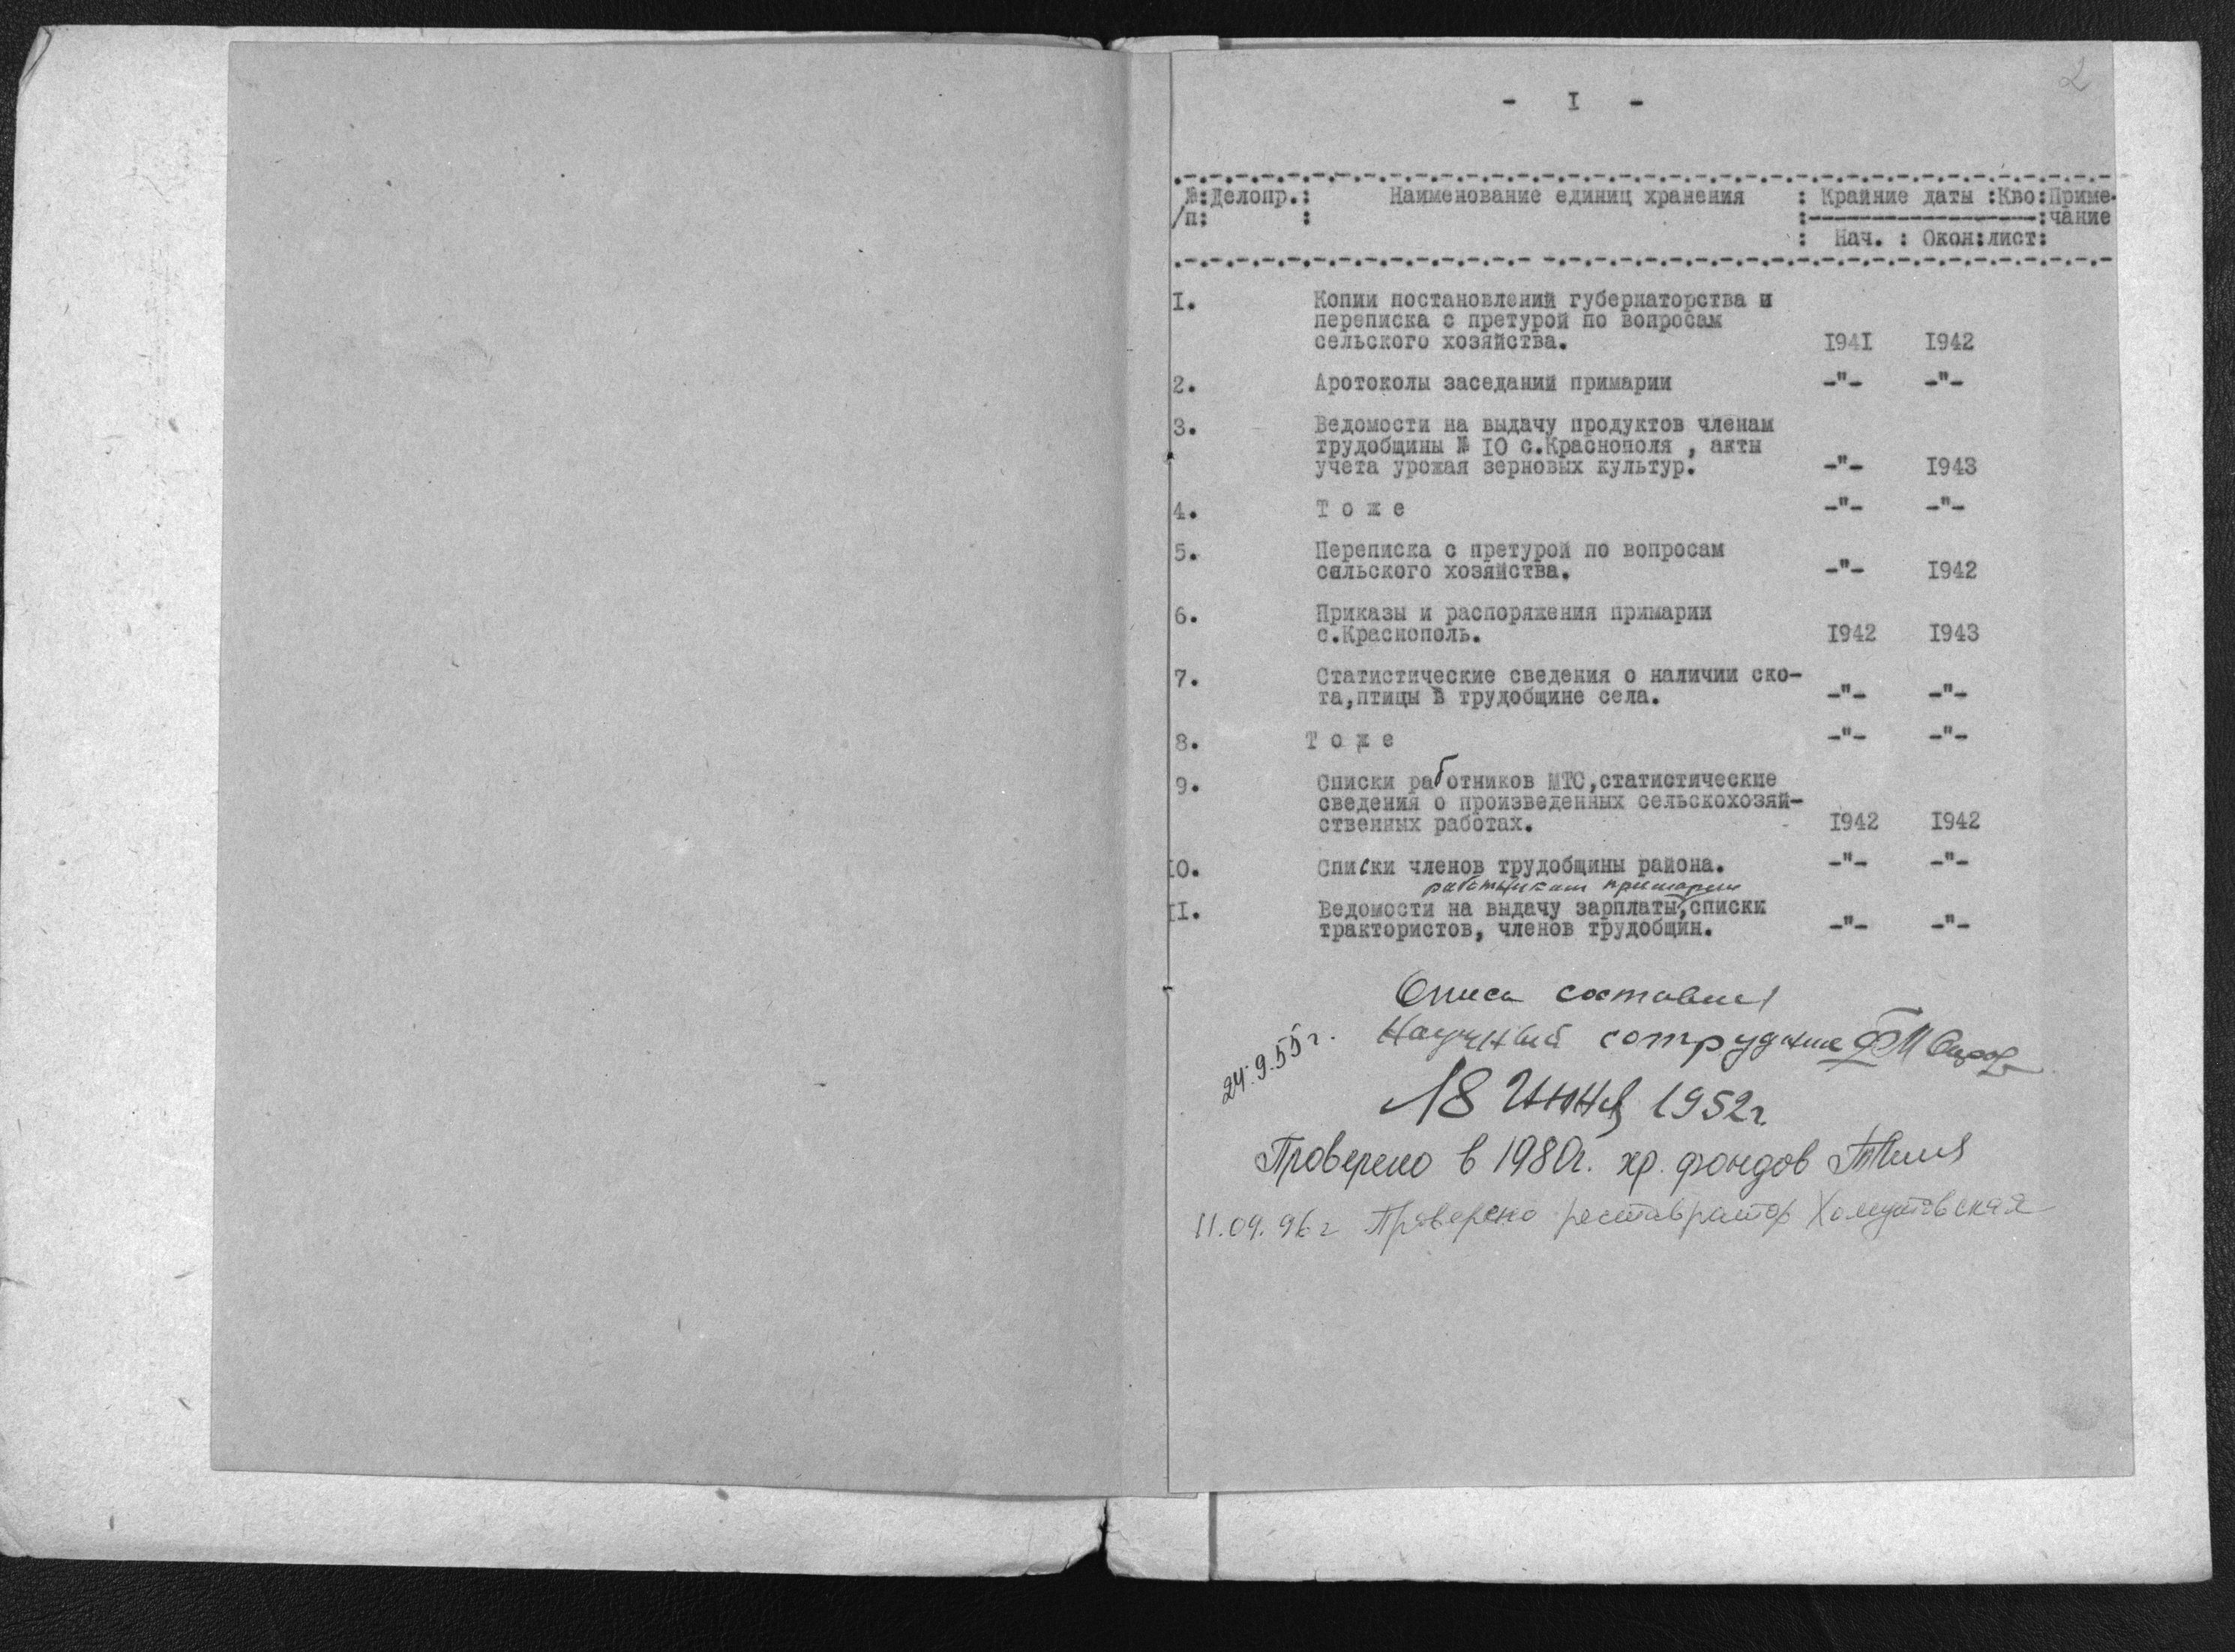 2
- I -
№:Делопр.: Наименование единиц хранения : Крайние даты :Кво:Приме-
/п: : :-----------------:чание
: Нач. : Окон:лист:
I. Копии постановлений губернаторства и
переписка с претурой по вопросам
сельского хозяйства. I94I I942
2. Аротоколы заседаний примарии -"- -"-
3. Ведомости на выдачу продуктов членам
трудобщины № IO с.Краснополя , акты
учета урожая зерновых культур. -"- I943
4. Т о ж е -"- -"-
5. Переписка с претурой по вопросам
сельского хозяйства. -"- I942
6. Приказы и распоряжения примарии
с.Краснополь. I942 I943
7. Статистические сведения о наличии ско-
та,птицы в трудобщине села. -"- -"-
8. Т о ж е -"- -"-
9. Списки работников МТС,статистические
сведения о произведенных сельскохозяй-
ственных работах. I942 I942
IO. Списки членов трудобщины района. -"- -"-
работникам примарии
II. Ведомости на выдачу зарплаты,списки
трактористов, членов трудобщин. -"- -"-
Опись составил
24.9.55 г. Научный сотрудник
18 Июня 1952 г.
Проверено в 1980г. хр. фондов
11.09.96 г Проверено реставратор Хомутовская